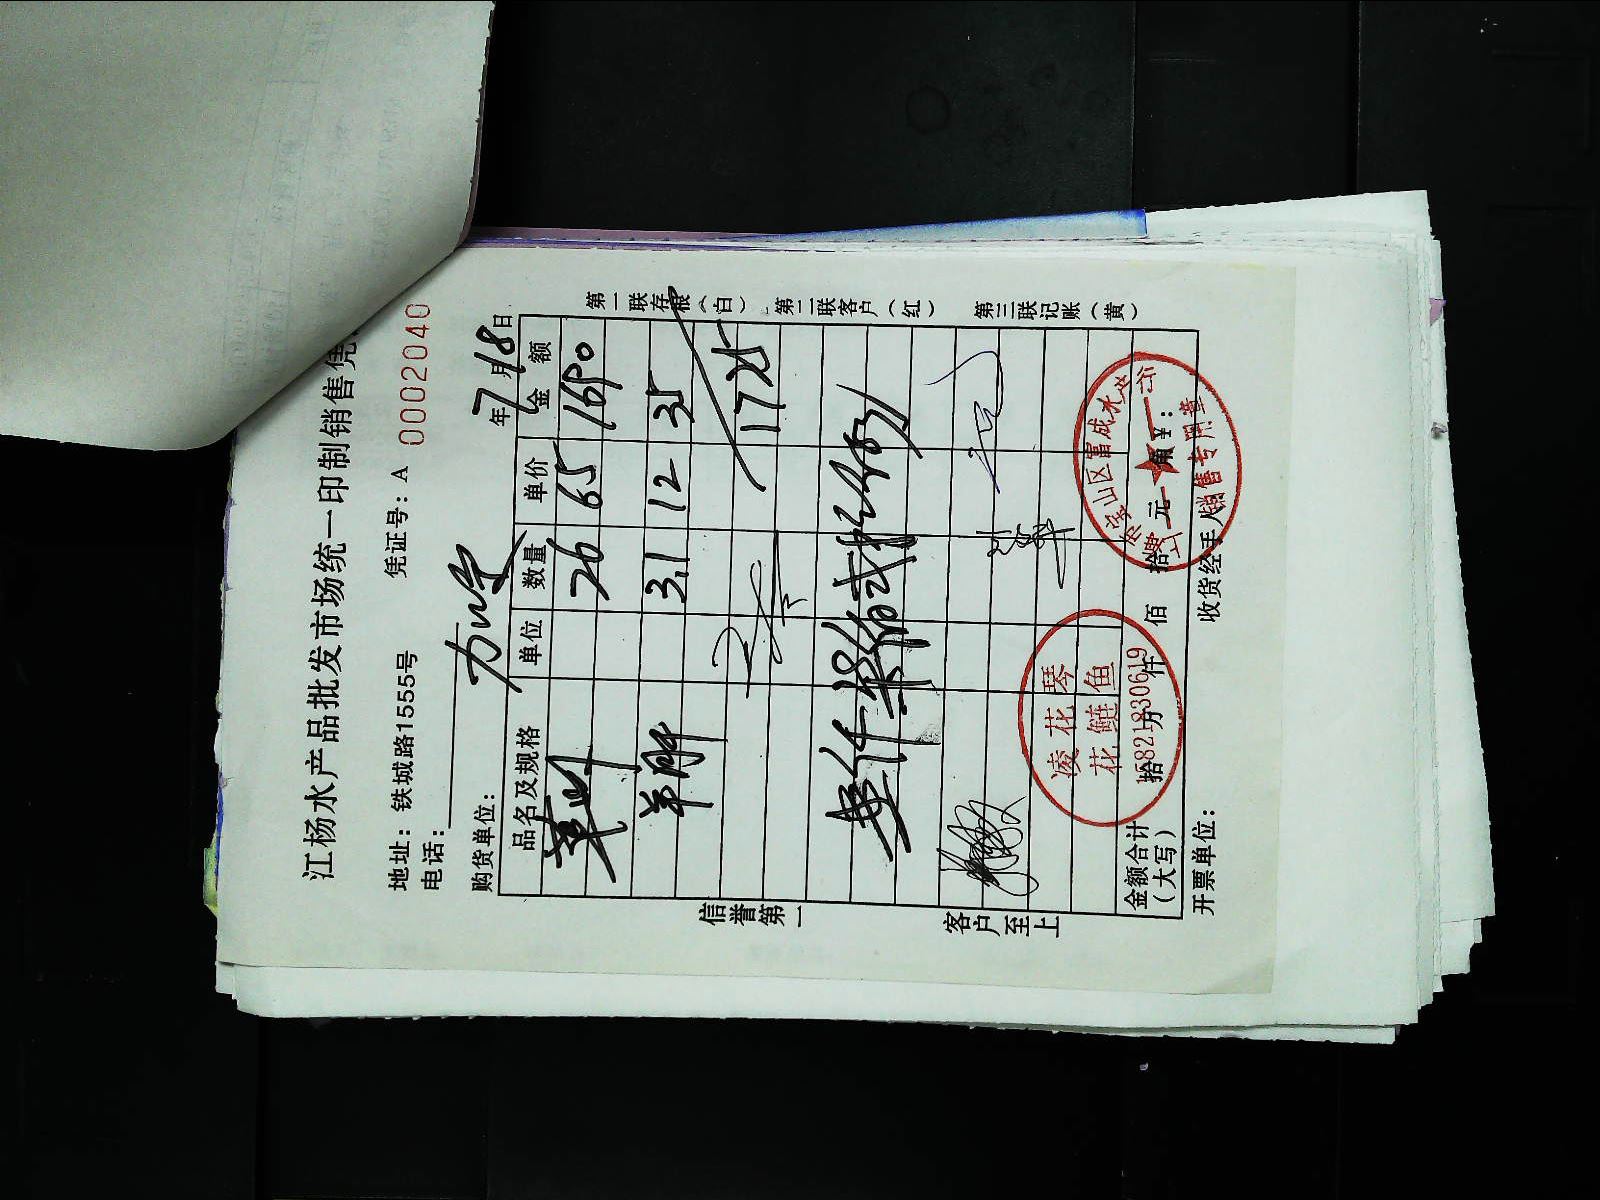 江杨水产品批发市场统一印制销售凭
地址：铁城路15555号 凭证号：A 0002040
电话：
购货单位： 年7月18日
品名及规格 单位 数量 单价 金额
26 65 1690
3.1 12 35
1725
壹仟柒佰贰拾伍
金额合计（大写） 拾 万 仟 佰 拾 元 角 ￥：
开票单位： 收货经手人：
信誉第一
客户至上
第一联存根（白） 第二联客户（红） 第三联记账（黄）
凌花琴
花鲢鱼
15821830619
宝山区富成水产行
销售专用章